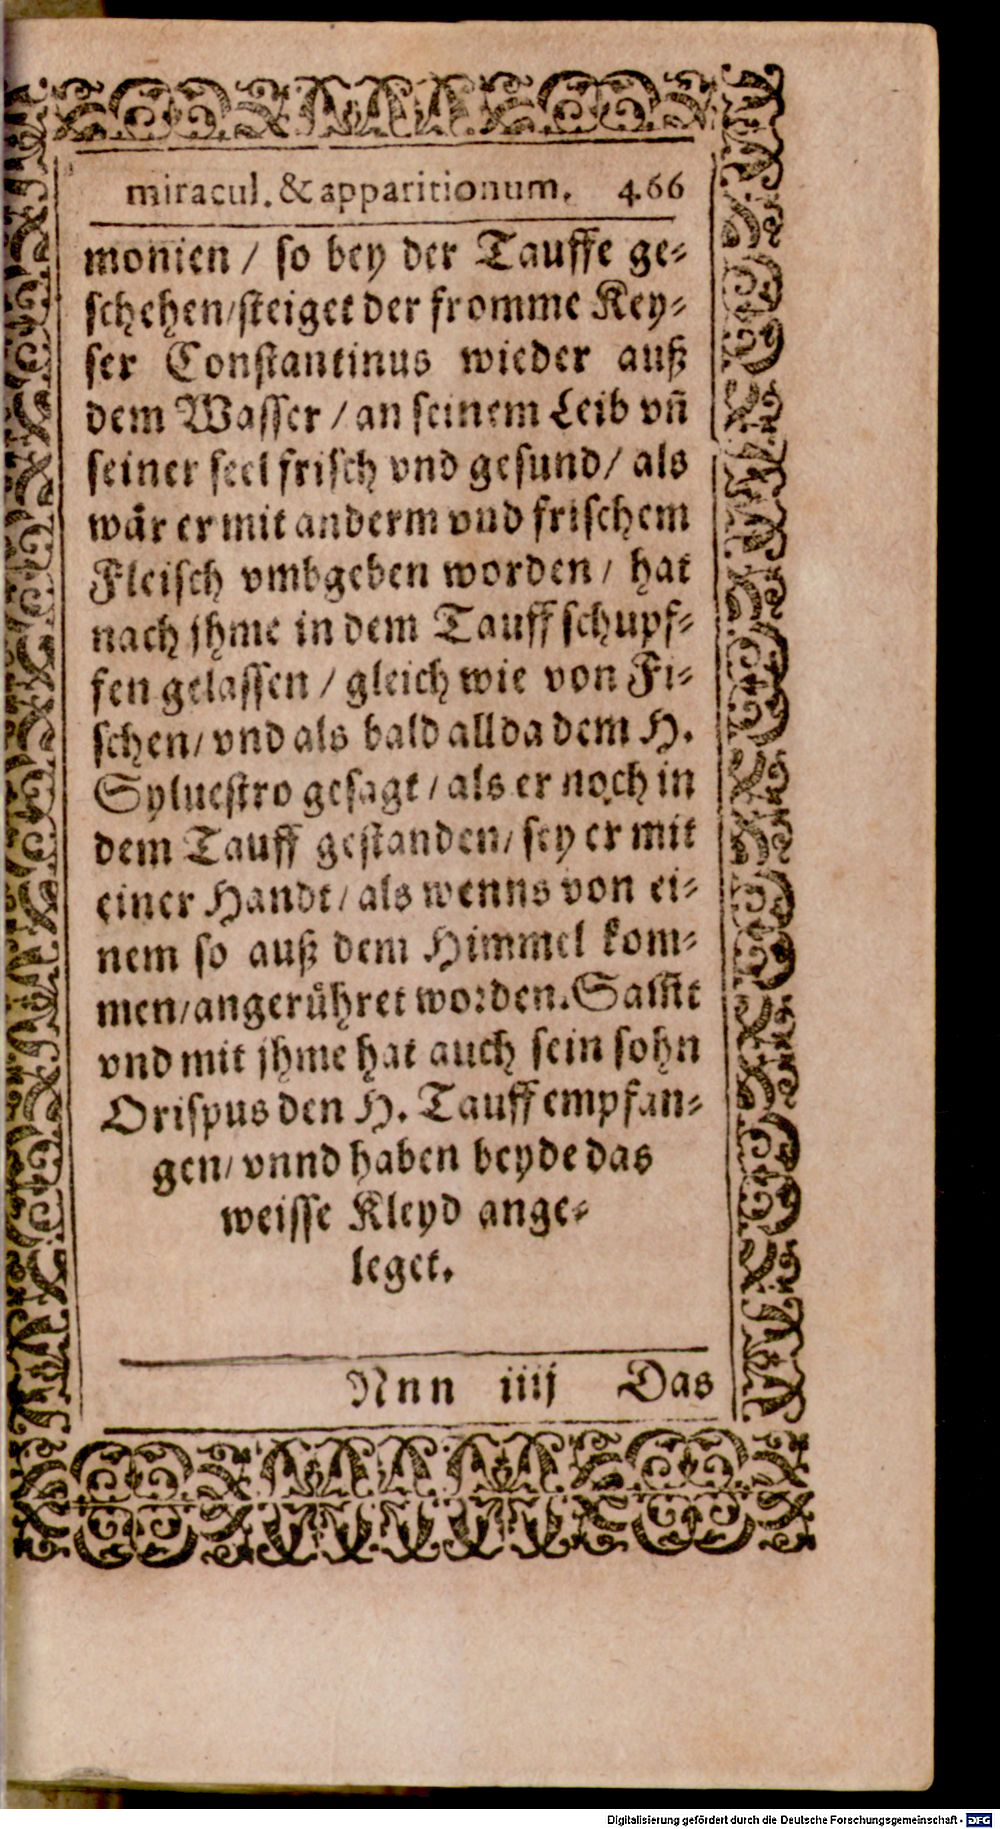 miracul. & apparitionum. 466
monien / so bey der Tauffe ge-
schehen/steiget der fromme Key-
ser Constantinus wieder auß
dem Wasser / an seinem Leib vñ
seiner seel frisch vnd gesund/ als
wär er mit anderm vnd frischem
Fleisch vmbgeben worden / hat
nach jhme in dem Tauff schupf-
fen gelassen / gleich wie von Fi-
schen/ vnd als bald allda dem H.
Syluestro gesagt / als er noch in
dem Tauff gestanden/ sey er mit
einer Handt/ als wenns von ei-
nem so auß dem Himmel kom-
men/angerühret worden. Samt
vnd mit jhme hat auch sein sohn
Crispus den H. Tauff empfan-
gen/ vnnd haben beyde das
weisse Kleyd ange-
leget.
Nnn iiij Das
Digitalisierung gefördert durch die Deutsche Forschungsgemeinschaft - DFG